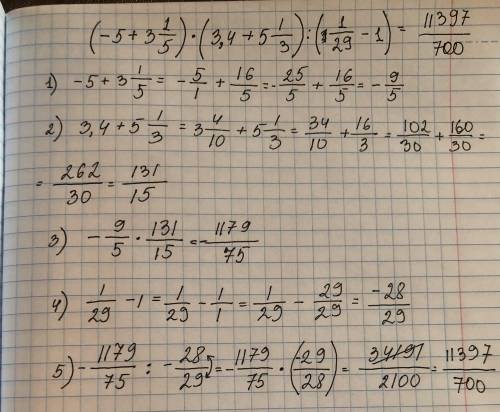 (-5+3 1/5)·(3,4+5 1/3):(1/29-1)=11397/700
1) -5+3 1/5=-5/1+16/5=-25/5+16/5=-9/5
2) 3,4+5 1/3=3 4/10+5 1/3=34/10+16/3=102/30+160/30=
=262/30=131/15
3) -9/5·131/15=-1179/75
4) 1/29-1=1/29-1/1=1/29-29/29=-28/29
5) -1179/75:-28/29=-1179/75·(-29/28)=34191/2100=11397/700